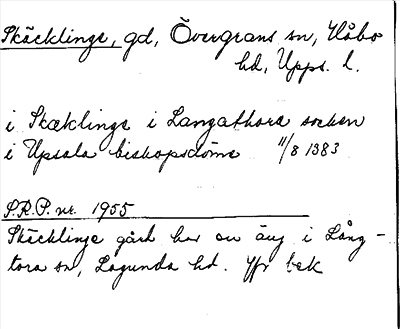 Skäcklinge, gd, Övergrans sn, Håbo
hd, Upps. l.
i Skæklinge i Langathora soken
i Upsala biskopsdöme 11/8 1383
S.R.P. nr. 1955
Skäcklinge gård har en äng i Lång-
tora sn, Lagunda hd. Jfr bek